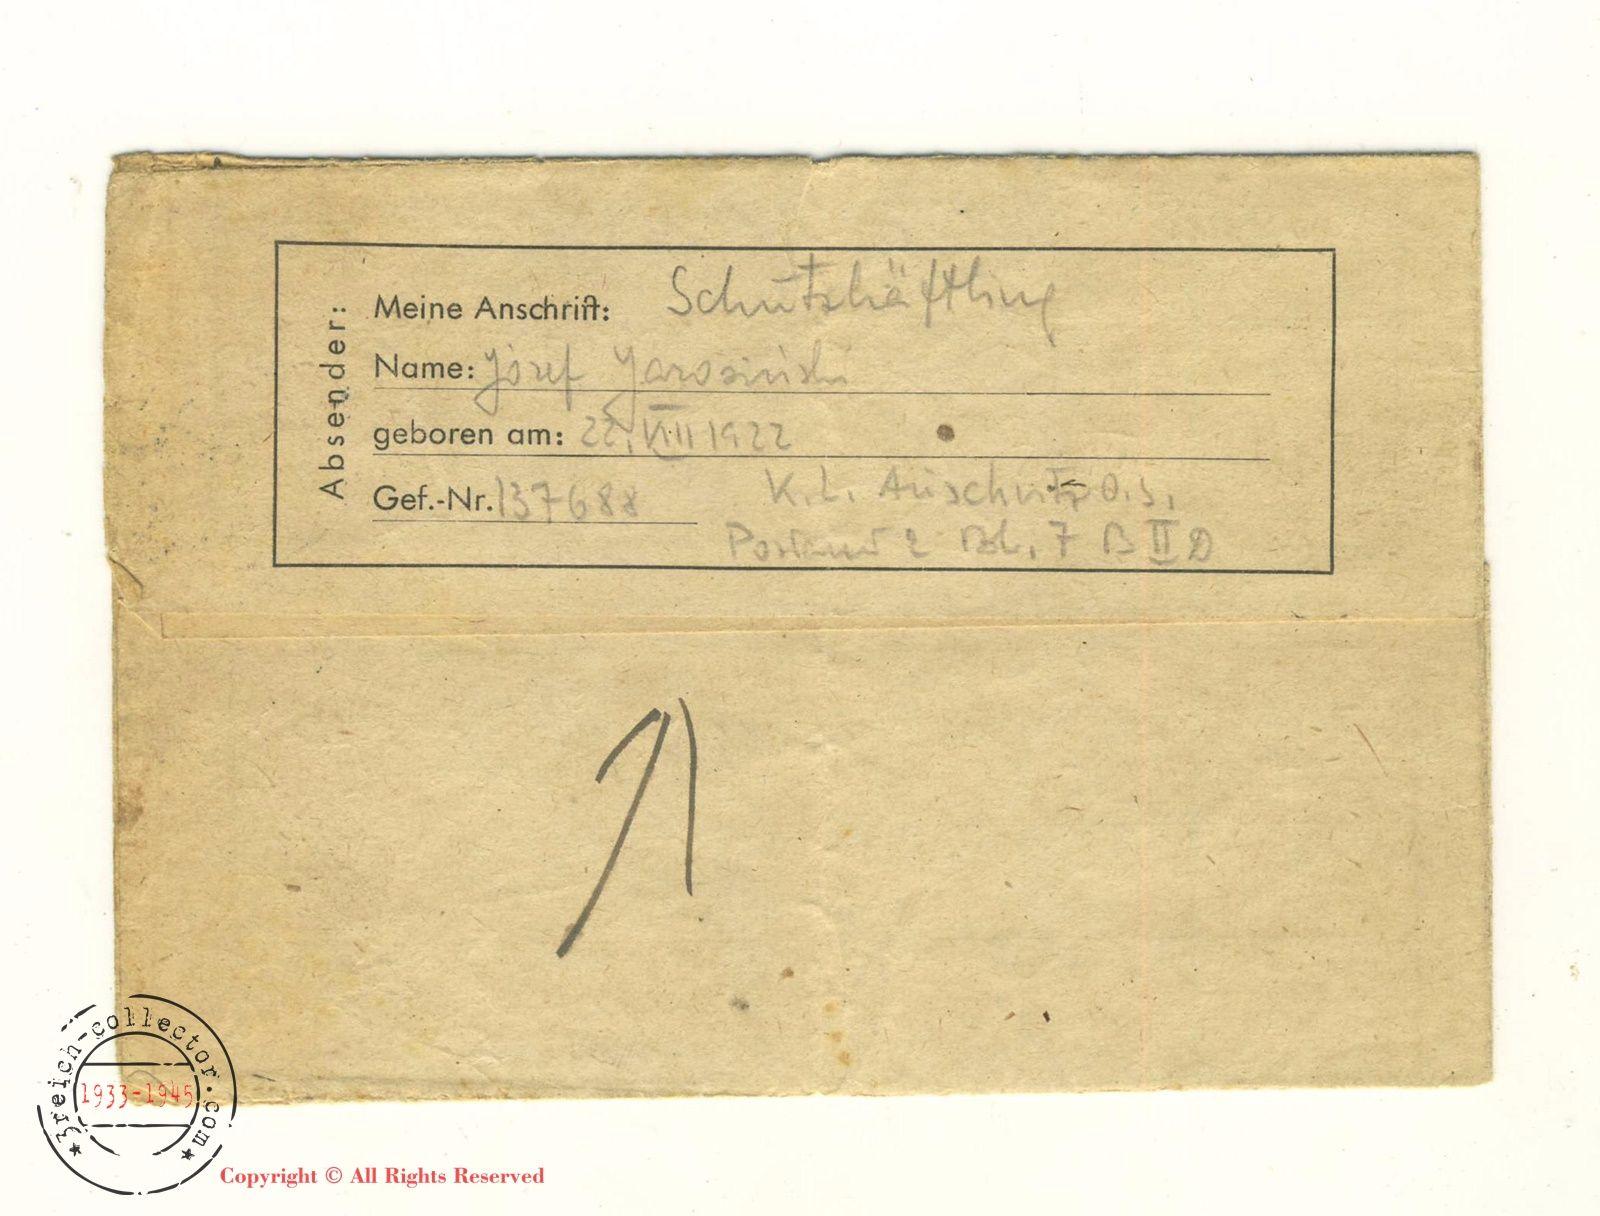 Absender:
Meine Anschrift: Schutzhäftling
Name: Józef Jarosiński
geboren am: 22. VII 1922
Gef.-Nr. 137688 K. L. Auschwitz O.S.
Postamt 2 Bl. 7 B II D
3reich-collector.com
1933-1945
Copyright © All Rights Reserved